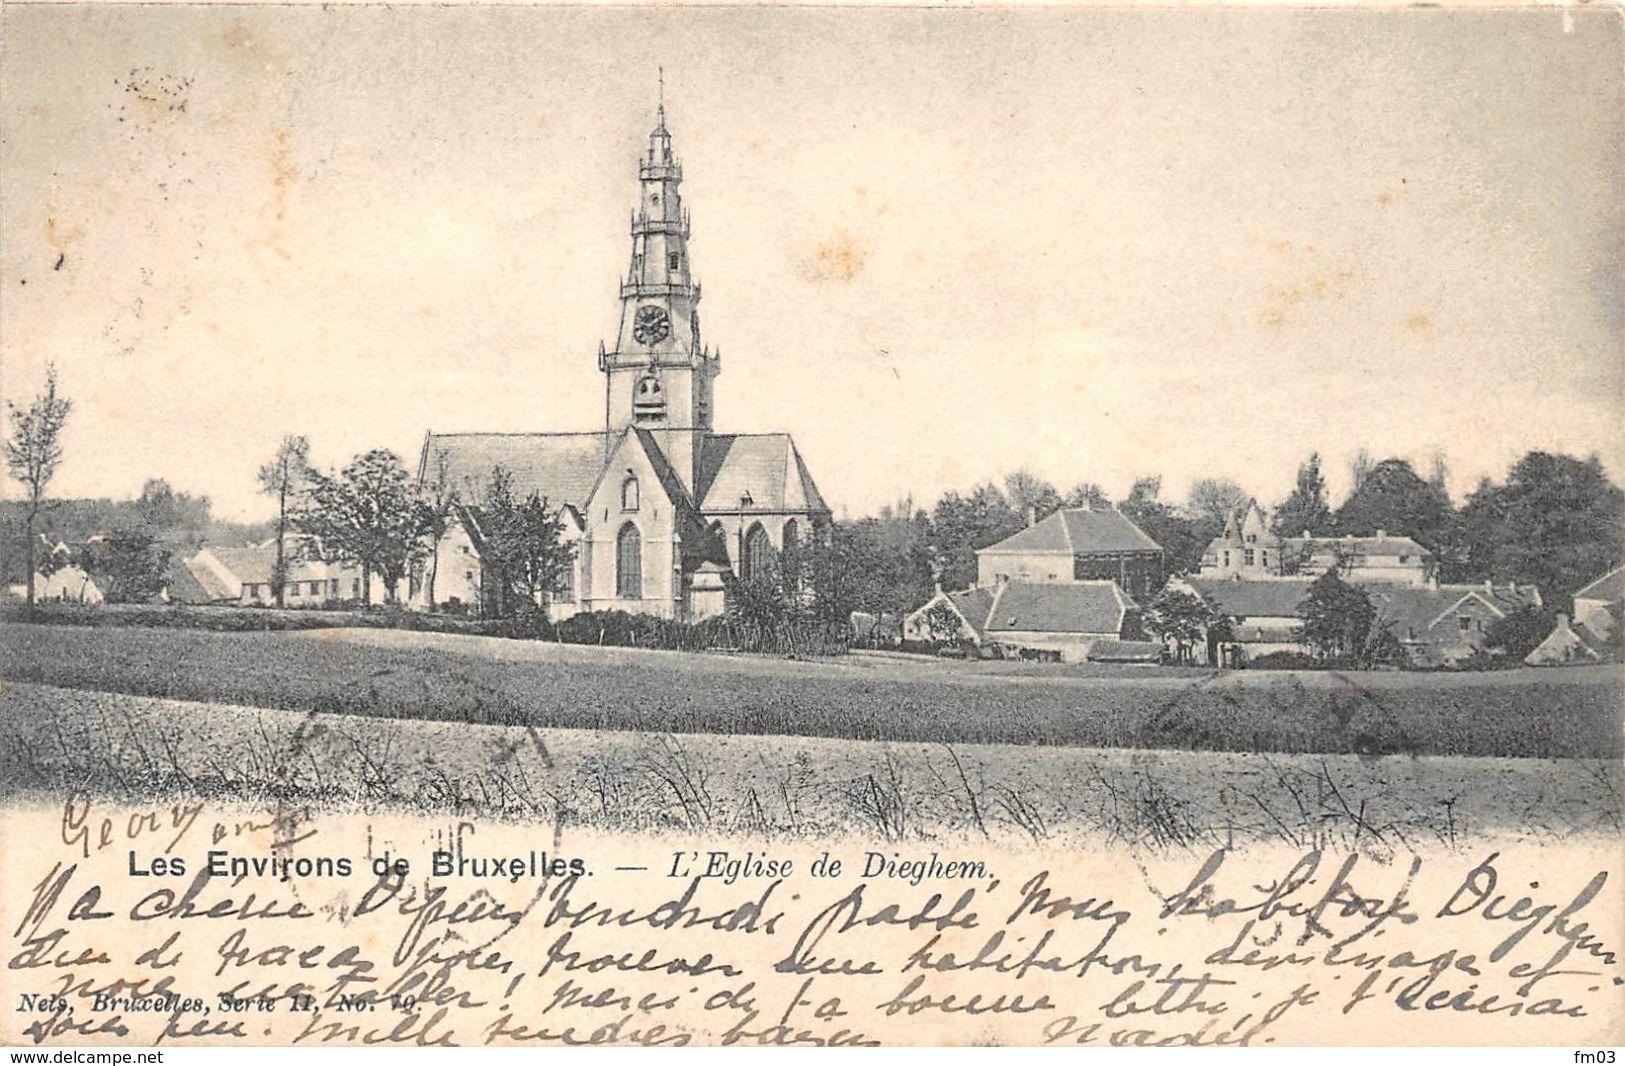 Georges
Les Environs de Bruxelles. — L'Eglise de Dieghem.
Ma chérie, Depuis Vendredi passé nous habitons Dieghem
de tracas pour trouver une habitation, déménager et
nous installer! Merci de ta bonne lettre, je t'écrirai
Nels, Bruxelles, Serie 11, No. 79.
sous peu. Mille tendres baisers
www.delcampe.net
fm03